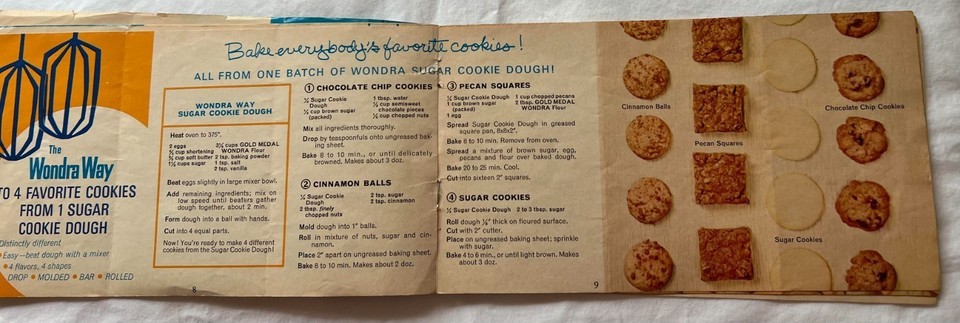 The
Wondra Way
TO 4 FAVORITE COOKIES
FROM 1 SUGAR
COOKIE DOUGH
Distinctly different
Easy—beat dough with a mixer
• 4 flavors, 4 shapes
DROP • MOLDED • BAR • ROLLED
Bake everybody's favorite cookies!
ALL FROM ONE BATCH OF WONDRA SUGAR COOKIE DOUGH!
WONDRA WAY
SUGAR COOKIE DOUGH
Heat oven to 375°.
2 eggs
shortening
soft butter
cups sugar
cups GOLD MEDAL
WONDRA Flour
2 tsp. baking powder
1 tsp. salt
2 tsp. vanilla
Beat eggs slightly in large mixer bowl.
Add remaining ingredients; mix on
low speed until beaters gather
dough together, about 2 min.
Form dough into a ball with hands.
Cut into 4 equal parts.
Now! You're ready to make 4 different
cookies from the Sugar Cookie Dough!
8
① CHOCOLATE CHIP COOKIES
¼ Sugar Cookie
Dough
cup brown sugar
(packed)
1 tbsp. water
½ cup semisweet
chocolate pieces
¼ cup chopped nuts
Mix all ingredients thoroughly.
Drop by teaspoonfuls onto ungreased bak-
ing sheet.
Bake 8 to 10 min., or until delicately
browned. Makes about 3 doz.
② CINNAMON BALLS
¼ Sugar Cookie
Dough
2 tbsp. finely
chopped nuts
2 tsp. sugar
2 tsp. cinnamon
Mold dough into 1" balls.
Roll in mixture of nuts, sugar and cin-
namon.
Place 2" apart on ungreased baking sheet.
Bake 8 to 10 min. Makes about 2 doz.
③ PECAN SQUARES
¼ Sugar Cookie Dough
1 cup brown sugar
(packed)
1 egg
1 cup chopped pecans
2 tbsp. GOLD MEDAL
WONDRA Flour
Spread Sugar Cookie Dough in greased
square pan, 8x8x2".
Bake 6 to 10 min. Remove from oven.
Spread a mixture of brown sugar, egg,
pecans and flour over baked dough.
Bake 20 to 25 min. Cool.
Cut into sixteen 2" squares.
④ SUGAR COOKIES
¼ Sugar Cookie Dough
2 to 3 tbsp. sugar
Roll dough ⅛" thick on floured surface.
Cut with 2" cutter.
Place on ungreased baking sheet; sprinkle
with sugar.
Bake 4 to 6 min., or until light brown. Makes
about 3 doz.
9
Cinnamon Balls
Pecan Squares
Sugar Cookies
Chocolate Chip Cookies